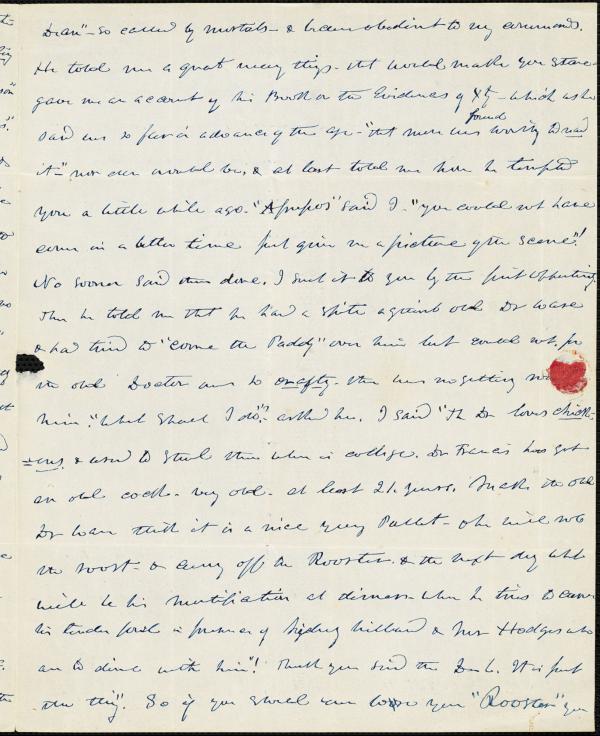 Dian" - so called by mortals - & became obedient to my commands.
He told me a great many things - that would make you stare -
gave me an account of his Book on the Evidences of Xty - which as he
said was so far in advance of the age - "that men were found worthy to read
it -" nor ever would be, & at last told me how he tempted
you a little while ago. "Apropos" said I - "you could not have
come in a better time just give me a picture of the scene"!
No sooner said than done. I send it to you by the first opportunity.
Then he told me that he had a spite against old Dr Ware
& had tried to "come the Paddy" over him but could not, for
the old Doctor was so crafty - there was no getting
him. "What shall I do"? asked he. I said "The Dr loves chick-
ens, & used to steal them when in college. Dr Francis has got
an old cock - very old - at least 21 years. Make the old
Dr Ware think it is a nice young Pullet - he will rob
the roost - & carry off the Rooster. & the next day what
will be his mortification at dinner when he tries to carve
his tender fowl in presence of Sidney Willard & Mr Hodges who
are to dine with him"! Thank you said the D. It is just
the thing". So if you should lose your "Rooster" you